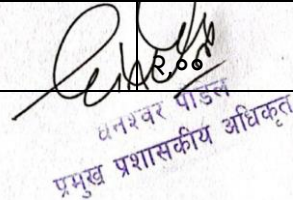 २.००
धनेश्वर पौडेल
प्रमुख प्रशासकीय अधिकृत